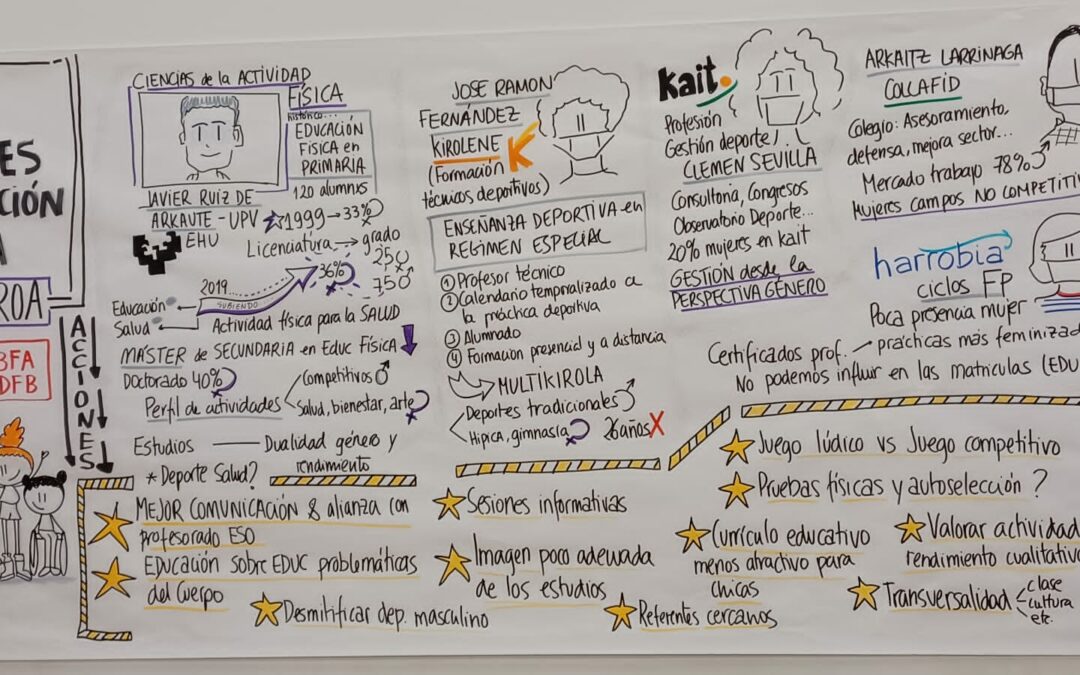 ES
CIÓN
A
ROA
BFA
DFB
ACCIONES
CIENCIAS de la ACTIVIDAD
FÍSICA
histórico...
EDUCACIÓN
FÍSICA en
PRIMARIA
120 alumnxs
JAVIER RUIZ DE
ARKAUTE - UPV
EHU
1999 → 33%♀
Licenciatura → grado
250♀
750♂
2019...
SUBIENDO
36%♀
Educación
Salud
Actividad física para la SALUD
MÁSTER de SECUNDARIA en Educ Física
Doctorado 40%♀
Perfil de actividades
Competitivos ♂
Salud, bienestar, arte ♀
Estudios — Dualidad género y
rendimiento
* Deporte Salud?
JOSE RAMON
FERNÁNDEZ
KIROLENE
K
(Formación
técnicos deportivos)
ENSEÑANZA DEPORTIVA en
RÉGIMEN ESPECIAL
① Profesor técnico
② Calendario temporalizado a
la práctica deportiva
③ Alumnado
④ Formación presencial y a distancia
MULTIKIROLA
Deportes tradicionales ♂
Hípica, gimnasia ♀
26 años X
kait.
Profesión
Gestión deporte
CLEMEN SEVILLA
Consultoría, Congresos
Observatorio Deporte...
20% mujeres en kait
GESTIÓN desde la
PERSPECTIVA GÉNERO
ARKAITZ LARRINAGA
COLCAFID
Colegio: Asesoramiento,
defensa, mejora sector...
Mercado trabajo 78% ♂
Mujeres campos NO COMPETITIV
harrobia
ciclos FP
Poca presencia mujer
Certificados prof. → prácticas más feminizad
No podemos influir en las matrículas (EDU
MEJOR COMUNICACIÓN & alianza con
profesorado ESO
EDUCACIÓN SOBRE EDUC problemáticas
del Cuerpo
Desmitificar dep. masculino
Sesiones informativas
Imagen poco adecuada
de los estudios
Referentes cercanos
Juego lúdico vs Juego competitivo
Pruebas físicas y autoselección?
Currículo educativo
menos atractivo para
chicas
Valorar actividad
rendimiento cualitativo
Transversalidad
clase
cultura
etc.